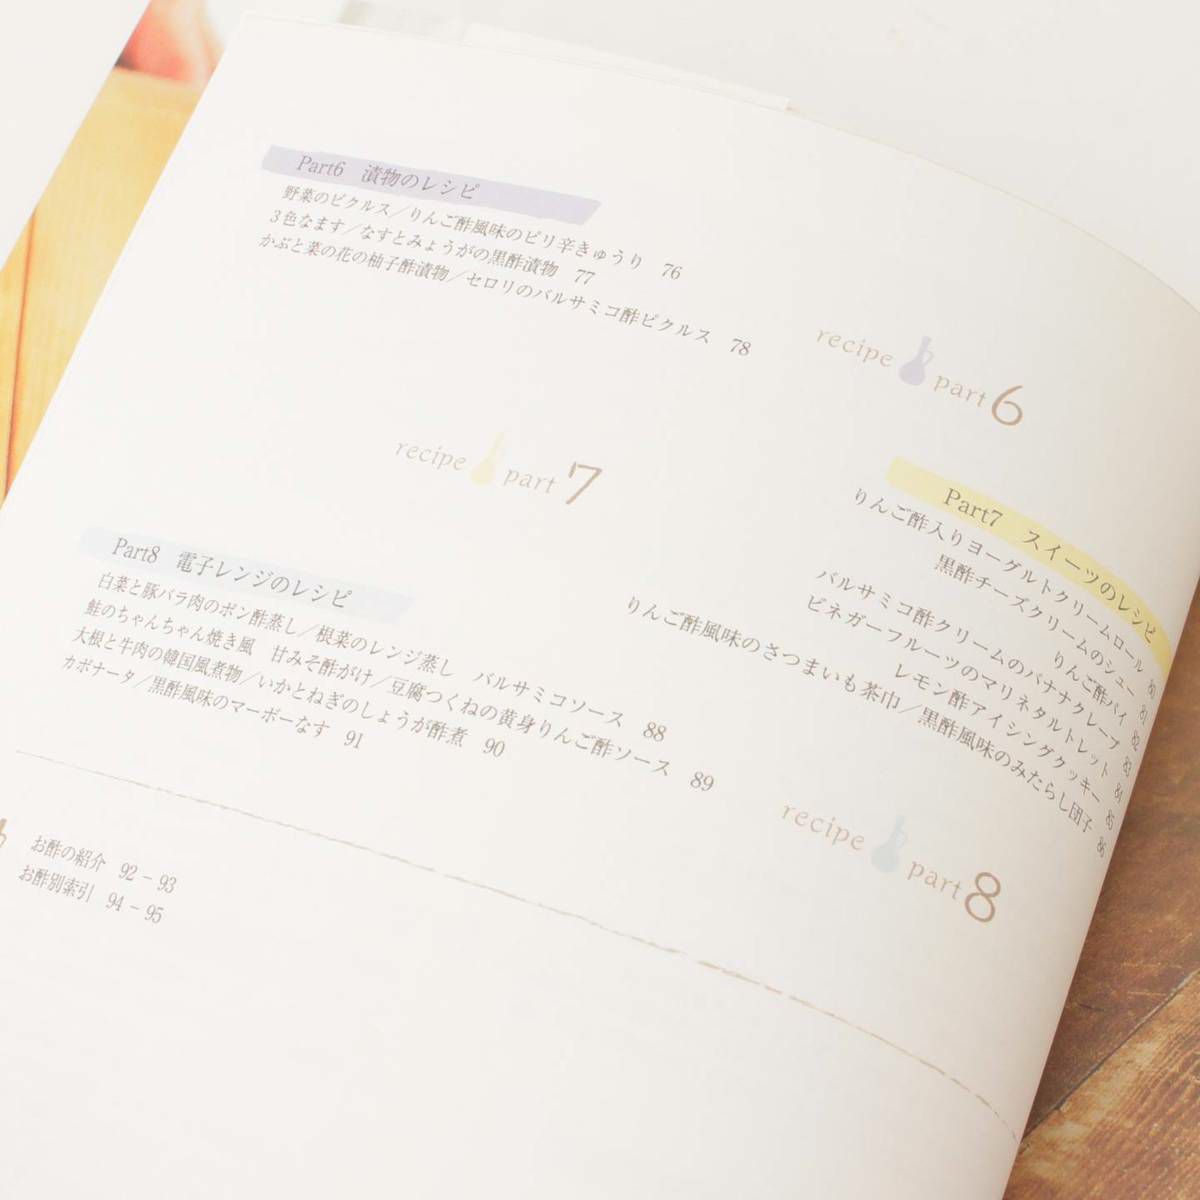 Part6 漬物のレシピ
野菜のピクルス／りんご酢風味のピリ辛きゅうり 76
3色なます／なすとみょうがの黒酢漬物 77
かぶと菜の花の柚子酢漬物／セロリのバルサミコ酢ピクルス 78
recipe part 6
recipe part 7
Part7 スイーツのレシピ
りんご酢入りヨーグルトクリームロール 80
黒酢チーズクリームのシュー 81
りんご酢パイ 82
バルサミコ酢クリームのバナナクレープ 83
ビネガーフルーツのマリネタルトレット 84
レモン酢アイシングクッキー 85
りんご酢風味のさつまいも茶巾／黒酢風味のみたらし団子 86
Part8 電子レンジのレシピ
白菜と豚バラ肉のポン酢蒸し／根菜のレンジ蒸し バルサミコソース 88
鮭のちゃんちゃん焼き風 甘みそ酢がけ／豆腐つくねの黄身りんご酢ソース 89
大根と牛肉の韓国風煮物／いかとねぎのしょうが酢煮 90
カポナータ／黒酢風味のマーボーなす 91
recipe part 8
お酢の紹介 92－93
お酢別索引 94－95